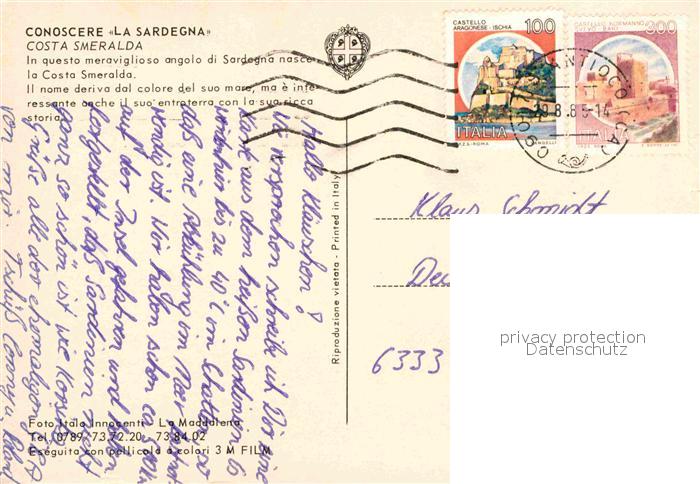 CONOSCERE «LA SARDEGNA»
COSTA SMERALDA
In questo meraviglioso angolo di Sardegna nasce
la Costa Smeralda.
Il nome deriva dal colore del suo mare, ma è inte-
ressante anche il suo entroterra con la sua ricca
storia.
CASTELLO
ARAGONESE - ISCHIA
100
ITALIA
CASTELLO NORMANNO
SVEVO - BARI
300
ANTIOCO (CA)
19.8.85-14
Hallo Kläuschen!
Wie versprochen schreibe ich Dir eine
Karte aus dem heißen Sardinien. Es
bis zu 40°C im Schatten, so
daß eine Abkühlung im Meer
ist. Wir haben schon ca.
auf der Insel gefahren und haben
festgestellt, daß Sardinien nicht
ganz so schön ist wie Korsika.
Grüße alle der ehemaligen
von mir. Tschüß
Klaus Schmidt
6333
Riproduzione vietata - Printed in Italy
Foto Italo Innocenti - La Maddalena
Tel. 0789 - 73.72.20 - 73.84.02
Eseguita con pellicola a colori 3 M FILM
privacy protection
Datenschutz